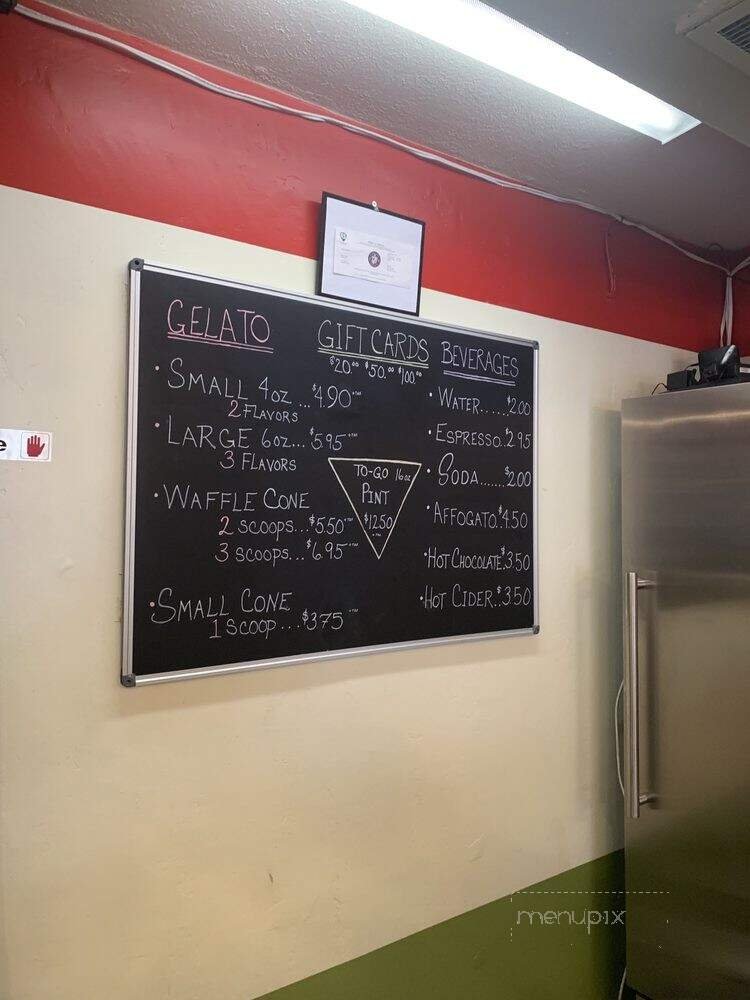 GELATO
• SMALL 4oz ...$4.90
2 FLAVORS
• LARGE 6oz...$5.95
3 FLAVORS
• WAFFLE CONE
2 SCOOPS...$5.50
3 SCOOPS...$6.95
• SMALL CONE
1 SCOOP...$3.75
GIFT CARDS
$20.00 $50.00 $100.00
TO-GO 16oz
PINT
$12.50
BEVERAGES
• WATER.....$2.00
• ESPRESSO.$2.95
• SODA.......$2.00
• AFFOGATO.$4.50
• HOT CHOCOLATE.$3.50
• HOT CIDER..$3.50
e
menupix